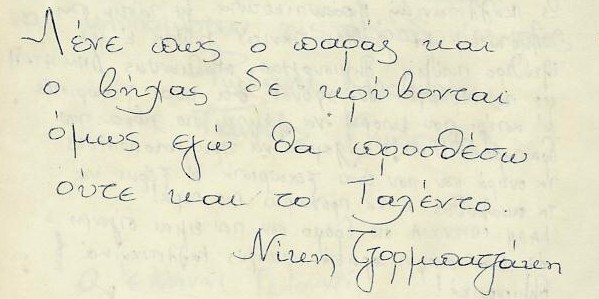 Λένε πως ο παράς και
ο βήχας δε κρύβονται
όμως εγώ θα προσθέσω
ούτε και το Ταλέντο.
Νίκη Τζορμπατζάκη